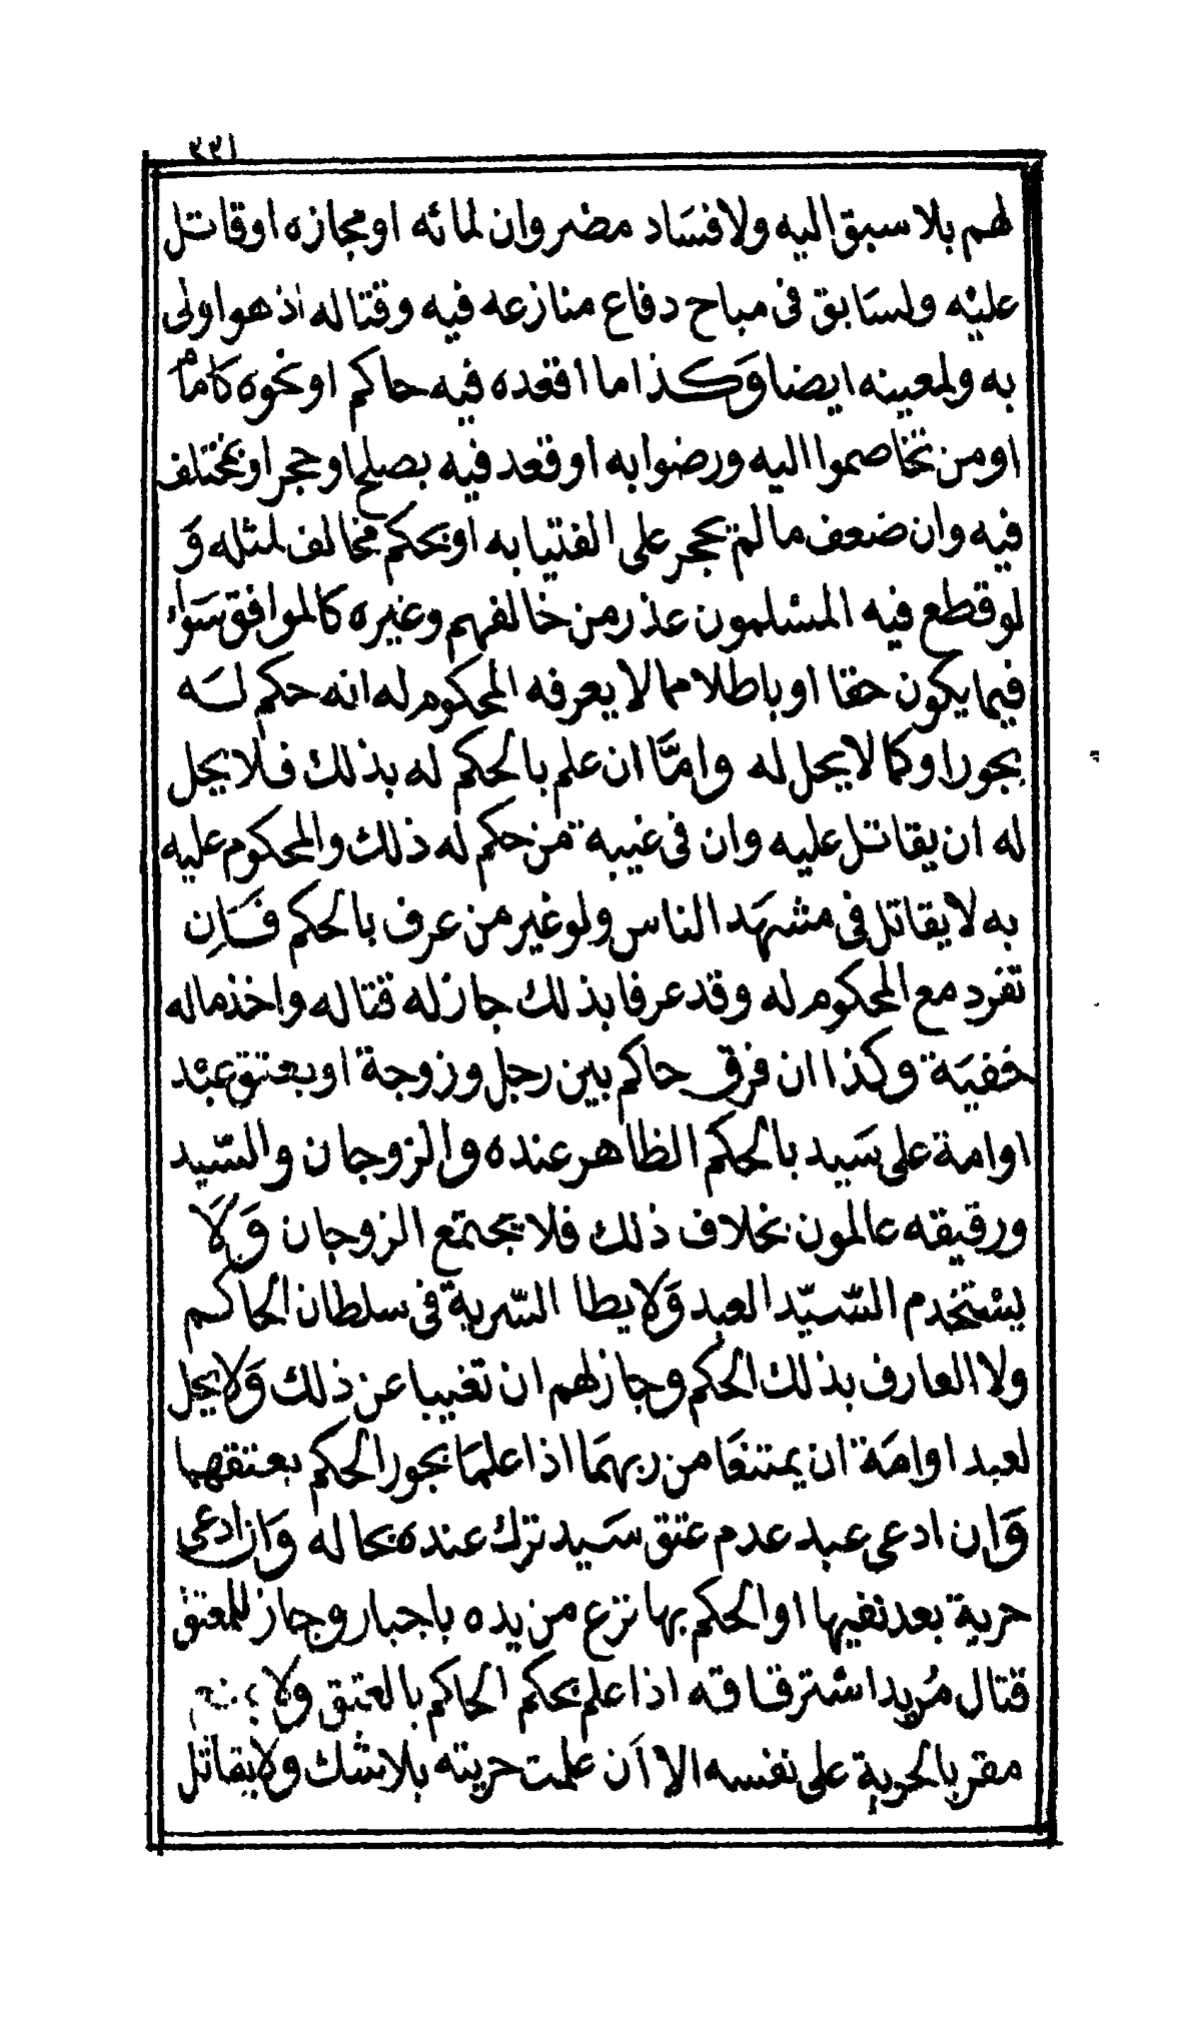 ٢٢١
لهم بلا سبق اليه ولا فساد مضر وان لمائه او مجازه او قاتل
عليْه ولسَابق فى مباح دفاع منازعه فيه وقتاله اذ هو اولى
به ولمعينه ايضا وَكذا ما اقعده فيه حاكم او نحوه كامام
او من تخاصموا اليه ورضوا به او قعد فيه بصلح او حجر او بمختلف
فيه وان ضعف ما لم يحجر على الفتيا به او بحكم مخالف لمثله وَ
لو قطع فيه المسلمون عذر من خالفهم وغيره كالموافق سَواء
فيما يكون حقا او باطلا مما لا يعرفه المحكوم له انه حكم لسَه
بجور او كما لا يحل له وامَّا ان علم بالحكم له بذلك فلا يحل
له ان يقاتل عليه وان فى غيبة من حكم له ذلك والمحكوم عليه
به لا يقاتل فى مشهَد الناس ولو غير من عرف بالحكم فَاِن
تفرد مع المحكوم له وقد عرفا بذلك جاز له قتاله واخذ ماله
خفيَة وكذا ان فرق حاكم بين رجل وزوجة او بعتق عبْد
او امة على سَيد بالحكم الظاهر عنده والزوجان والسّيد
ورقيقه عالمون بخلاف ذلك فلا يجتمع الزوجان وَلَا
يسْتخدم السّيّد العبد وَلا يطا السّرية فى سلطان الحاكم
ولا العارف بذلك الحكم وجاز لهم ان تغيبا عن ذلك وَلا يحل
لعبد او امَة ان يمتنعَا من ربهمَا اذا علمَا بجور الحكم بعتقهما
وَان ادعى عبد عدم عتق سَيد ترك عنده بحاله وَان ادعى
حرية بعد نفيها او الحكم بها نزع من يده باجبار وجاز للمعتق
قتال مُريد اسْترقاقه اذا علم بحكم الحاكم بالعتق ولا
مقر بالحرية على نفسه الا اَن علمت حريته بلا شك ولا يقاتل